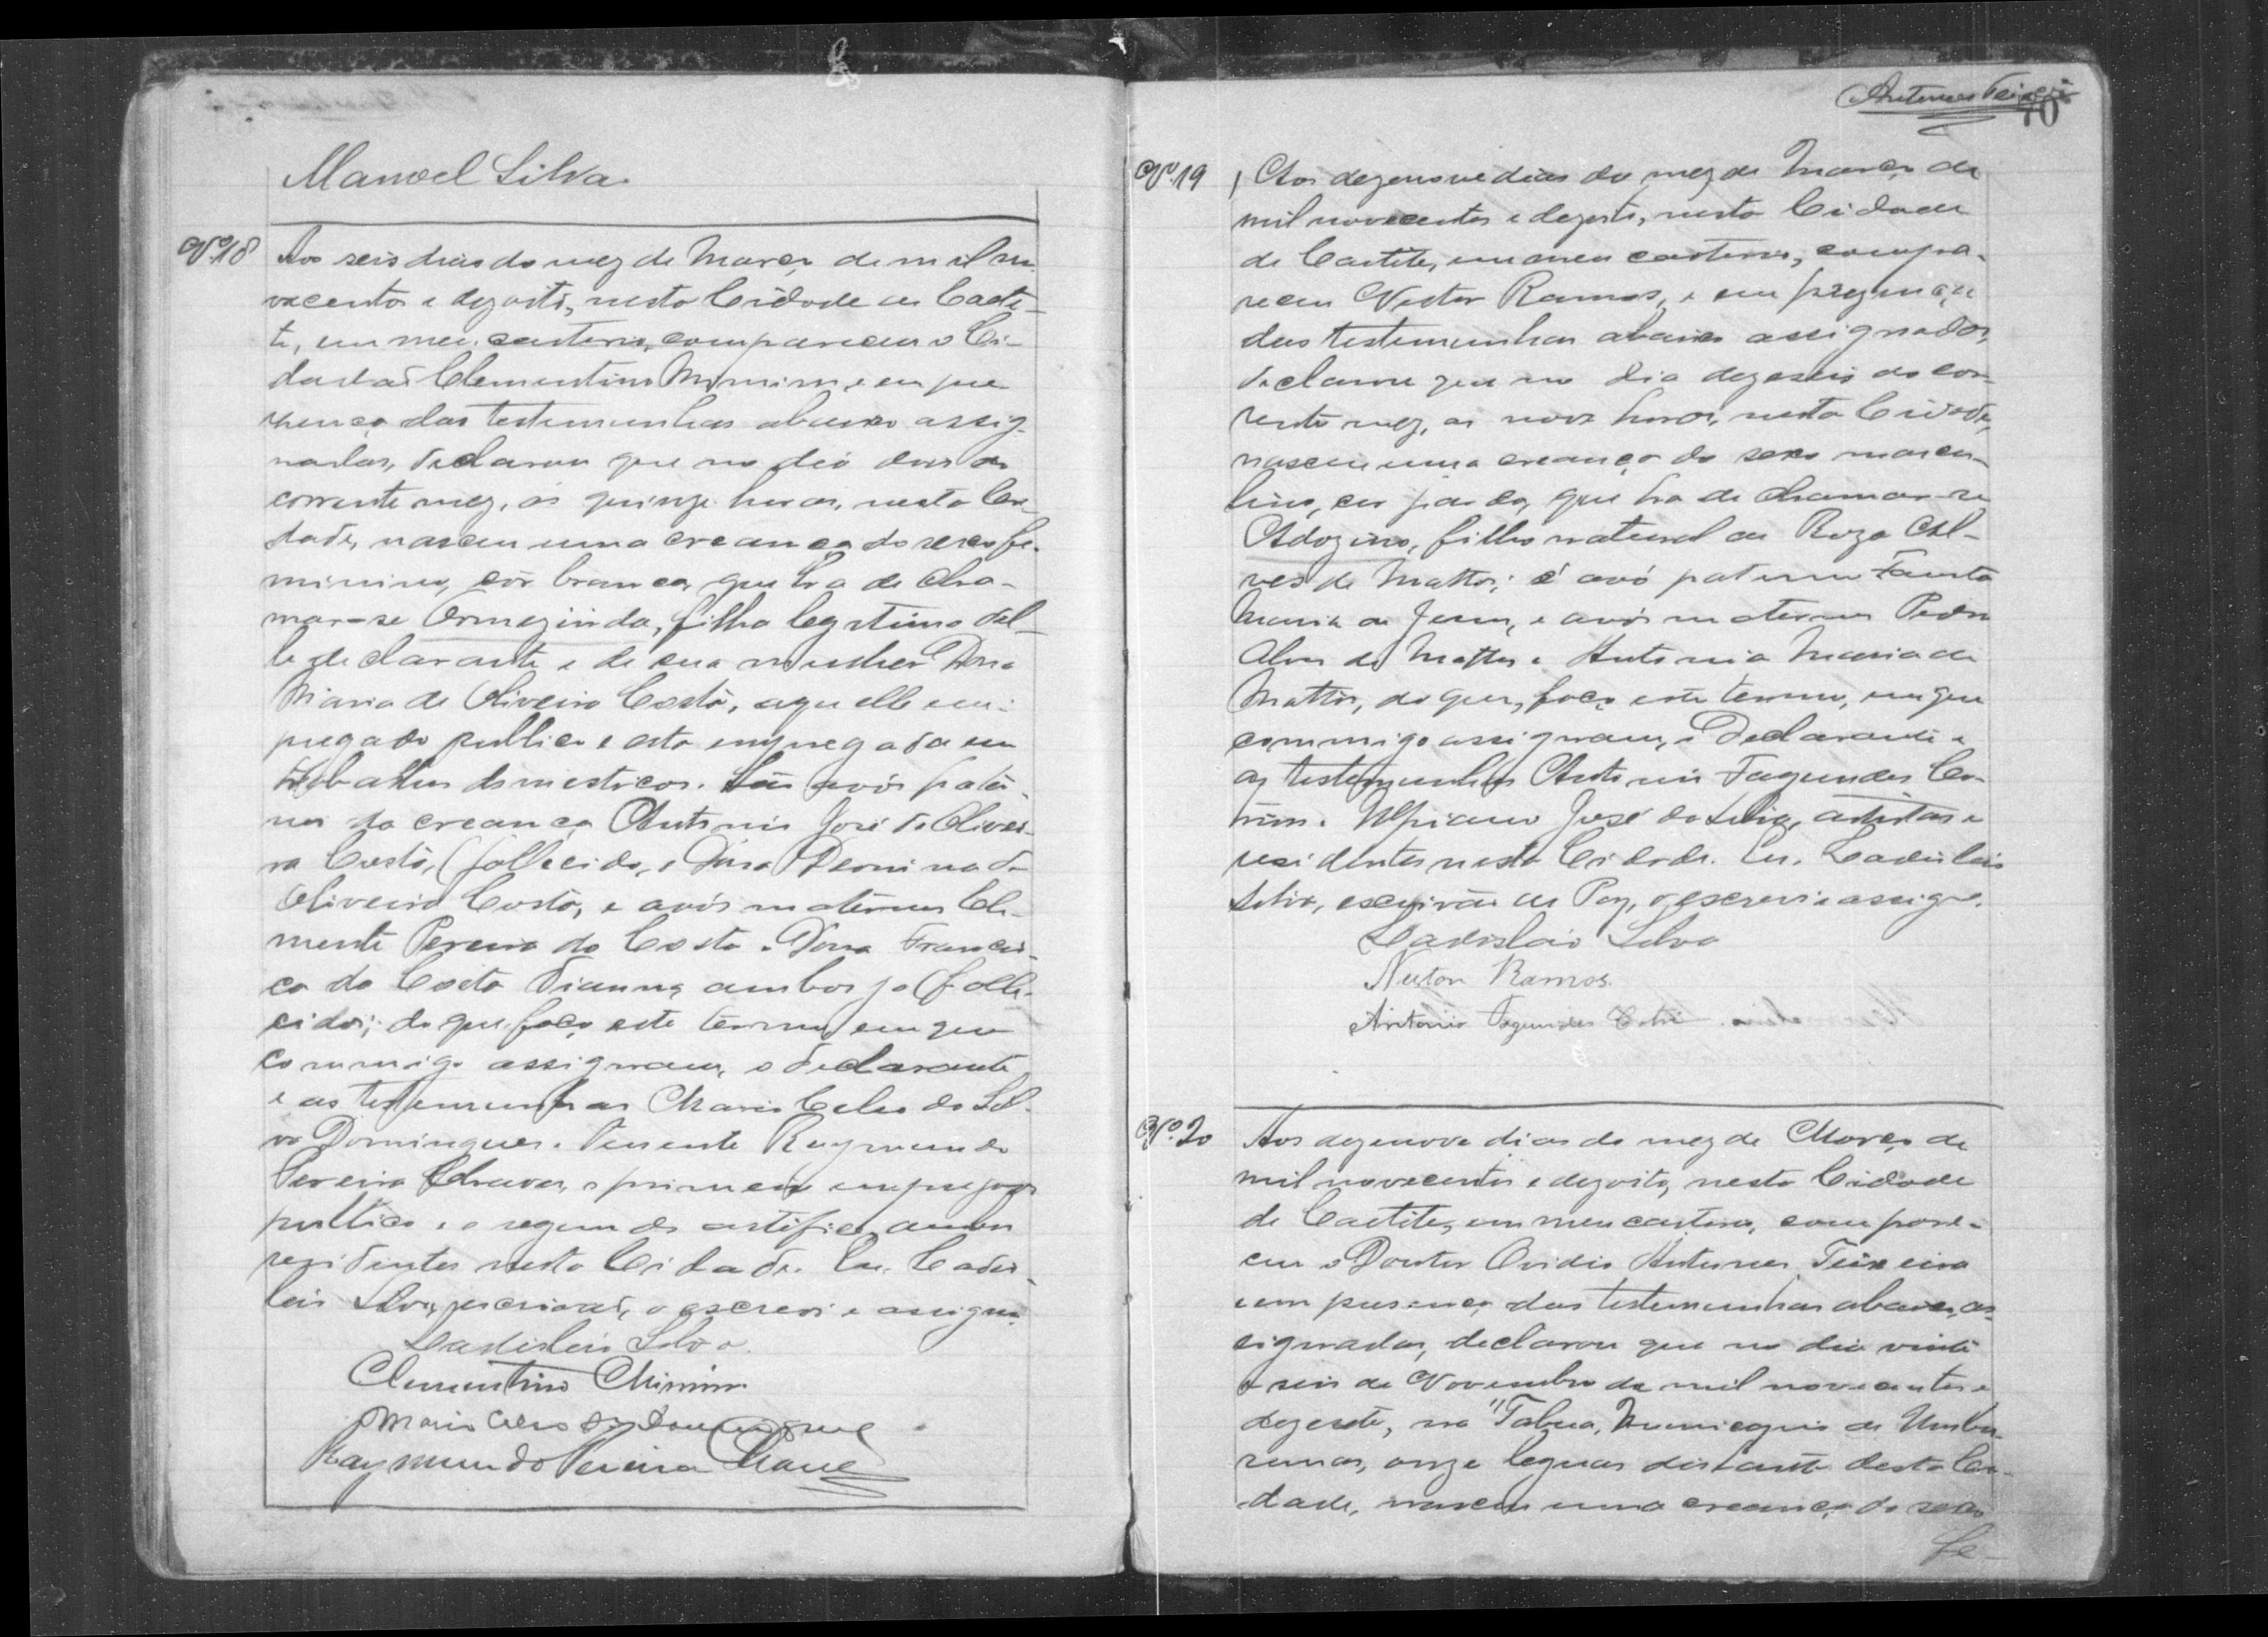 Manoel Silva
Nº 18 Aos seis dias do mez de Março de mil no-
vecentos e dezoito, nesta Cidade de Caeti-
te, em meu cartorio, compareceu o Ci-
dadão Clementino Mimim, e em pre-
sença das testemunhas abaixo assig-
nadas, declarou que no dia dois do
corrente mez, ás quinze horas, nesta Ci-
dade, nasceu uma creança do sexo fe-
minino, côr branca, que ha de cha-
mar-se Ormezinda, filha legitima del-
le declarante e de sua mulher Dona
Maria de Oliveira Costa, aquelle em-
pregado publico e esta empregada em
trabalhos domesticos. São avós pater-
nos da creança Antonio José de Olivei-
ra Costa, fallecido, e Dona de
Oliveira Costa, e avós maternos Cle-
mente Pereira da Costa e Dona Francis-
ca da Costa Vianna, ambos ja falle-
cidos; do que faço este termo, em que
commigo assignam, o declarante
e as testemunhas Mario Celso da Sil-
va Domingues e Tenente Raymundo
Pereira Chaves, o primeiro empregado
publico e o segundo artifice, ambos
residentes nesta Cidade. Eu, Ladis-
láo Silva, escrivão, o escrevi e assigno.
Ladisláo Silva
Clementino Mimim
Mario Celso da S. Domingues
Raymundo Pereira Chaves
Antunes Teixeira
70
Nº 19 Aos dezenove dias do mez de Março de
mil novecentos e dezoito, nesta Cidade
de Caetite, em meu cartorio, compa-
receu Nestor Ramos, e em presença
das testemunhas abaixo assignadas,
declarou que no dia dezeseis do cor-
rente mez, as nove horas, nesta Cidade,
nasceu uma creança do sexo mascu-
lino, cor parda, que ha de chamar-se
Adozino, filho natural de Roza Al-
ves de Mattos; é avó paterna Fausta
Maria de Jesus, e avós maternos Pedro
Alves de Mattos e Antonia Maria de
Mattos, do que, faço este termo, em que
commigo assignam, o Declarante e
as testemunhas Antonio Fagundes Co-
trim e Ulpiano José da Silva, artistas e
residentes nesta Cidade. Eu, Ladisláo
Silva, escrivão de Paz, o escrevi e assigno.
Ladisláo Silva
Nestor Ramos.
Antonio Fagundes Cotrim
Nº 20 Aos dezenove dias do mez de Março de
mil novecentos e dezoito, nesta Cidade
de Caetite, em meu cartorio, compare-
ceu o Doutor Ovidio Antunes Teixeira
e em presença das testemunhas abaixo as-
signadas, declarou que no dia vinte
e seis de Novembro de mil novecentos e
dezesete, na "Tabua, Municipio de Umbu-
ranas, onze leguas distante desta Ci-
dade, nasceu uma creança do sexo
fe-